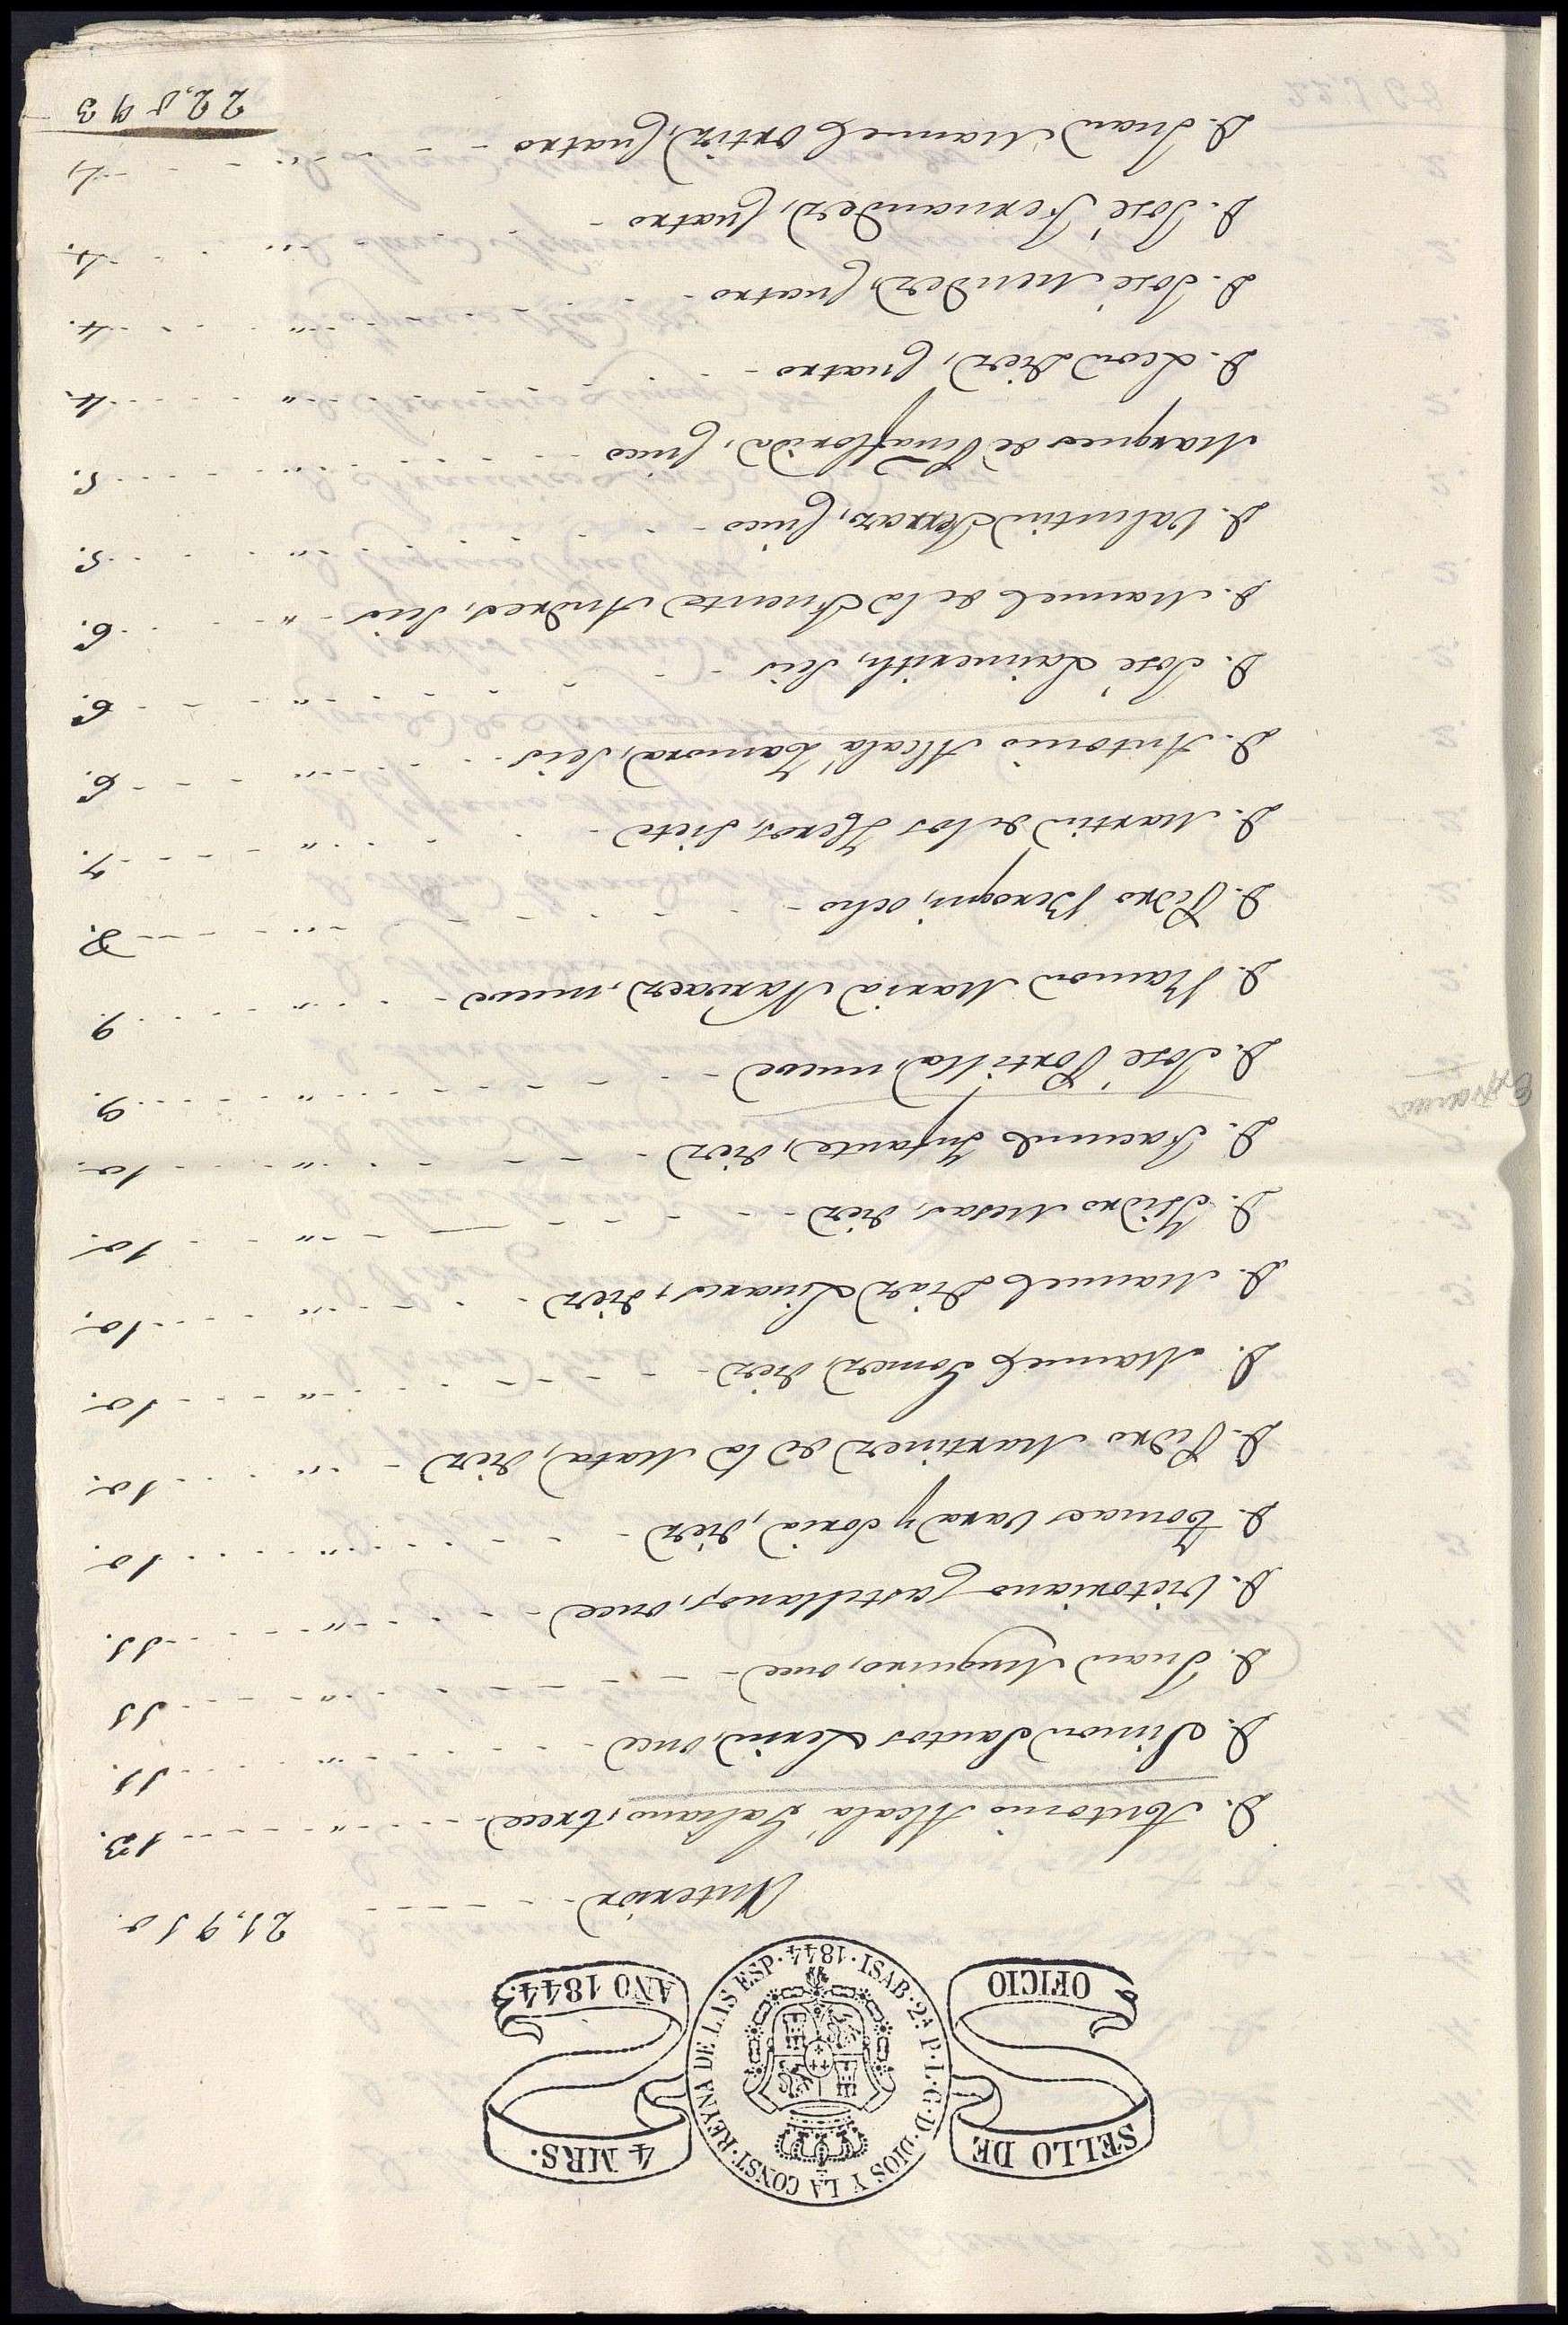 SELLO DE OFICIO
ISAB. 2ª P. L. G. D. DIOS Y LA CONST. REYNA DE LAS ESP. 1844.
4 MRS. AÑO 1844.
Anterior - - - - - 21,910.
D. Antonio Alcalá Galiano, trece - - - - " - - - - 13.
D. Simon Santos Lerin, once - - - - " - - - - 11.
D. Juan Muguiro, once - - - - " - - - - 11
D. Victoriano Castellanos, once - - - - " - - - - 11.
D. Tomas Vara y Soria, diez - - - - " - - - - 10.
D. Pedro Martinez de la Mata, diez - - - - " - - - - 10.
D. Manuel Gomez, diez - - - - " - - - - 10.
D. Manuel Diaz Linares, diez - - - - " - - - - 10.
D. Isidro Mesas, diez - - - - " - - - - 10.
D. Facundo Infante, diez - - - - " - - - - 10.
D. José Portilla, nueve - - - - " - - - - 9.
D. Ramon Maria Narvaez, nueve - - - - " - - - - 9.
D. Pedro Beroqui, ocho - - - - " - - - - 8.
D. Martin de los Heros, siete - - - - " - - - - 7.
D. Antonio Alcalá Zamora, seis - - - - " - - - - 6.
D. José Laimerith, seis - - - - " - - - - 6.
D. Manuel de la Fuente Andres, seis - - " - - - - 6.
D. Valentin Ferraz, cinco - - - - " - - - - 5.
Marques de Peñaflorida, cinco - - - - " - - - - 5.
D. Leon Diez, cuatro - - - - " - - - - 4.
D. José Mendez, cuatro - - - - " - - - - 4.
D. José Fernandez, cuatro - - - - " - - - - 4.
D. Juan Manuel Ortiz, cuatro - - - - " - - - - 4,
22,093